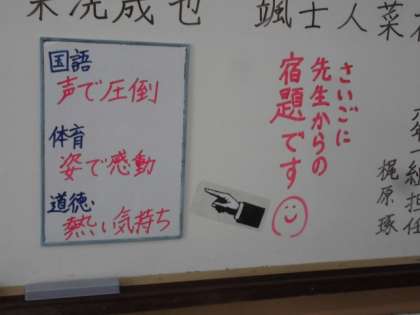 国語
声で圧倒
体育
姿で感動
道徳
熱い気持ち
さいごに
先生からの
宿題です
颯士人菜
担任
梶原琢